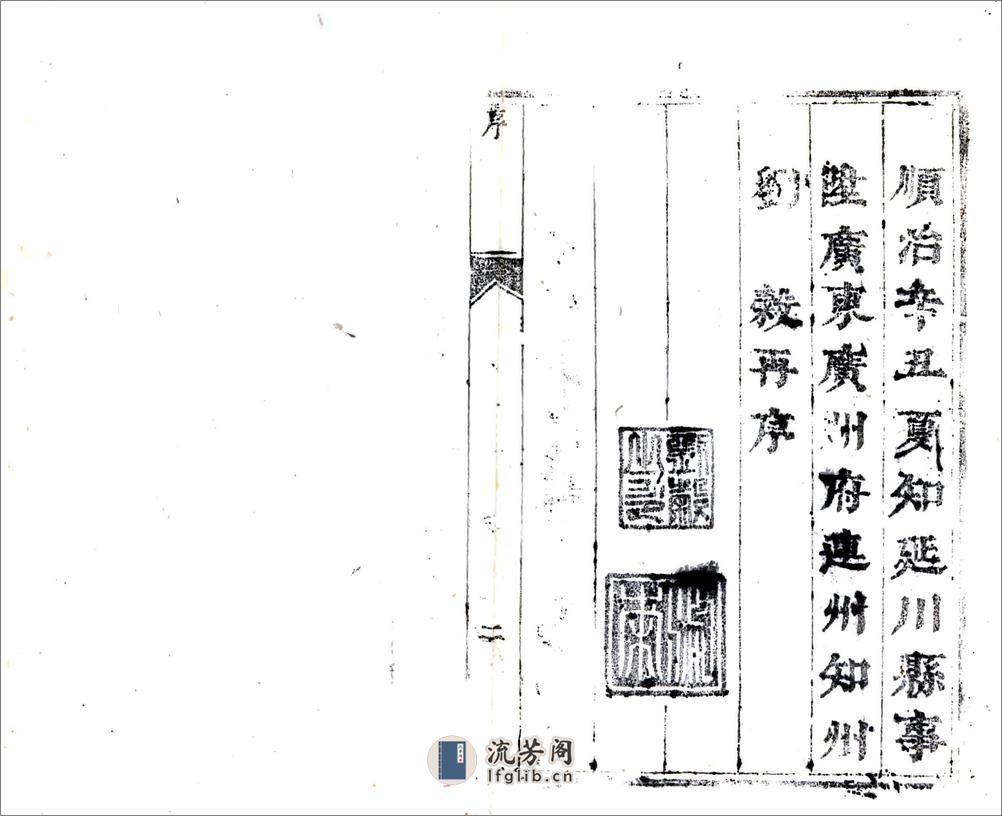 順治辛丑夏知延川縣事
陞廣東廣州府連州知州
劉 穀再序
序
二
流芳阁
lfglib.cn